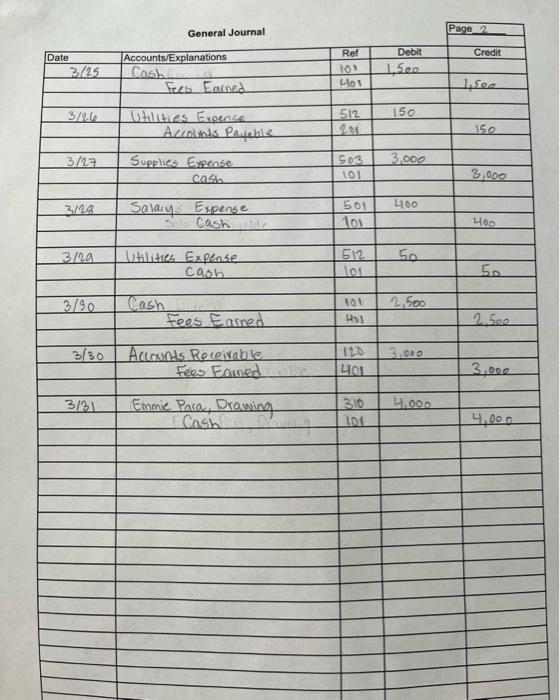 General Journal
Page 2
Date Accounts/Explanations Ref Debit Credit
3/25 Cash 101 1,500
Fees Earned 401 1,500
3/26 Utilities Expense 512 150
Accounts Payable 201 150
3/27 Supplies Expense 503 3,000
Cash 101 3,000
3/28 Salary Expense 501 400
Cash 101 400
3/29 Utilities Expense 512 50
Cash 101 50
3/30 Cash 101 2,500
Fees Earned 401 2,500
3/30 Accounts Receivable 120 3,000
Fees Earned 401 3,000
3/31 Emmie Para, Drawing 310 4,000
Cash 101 4,000